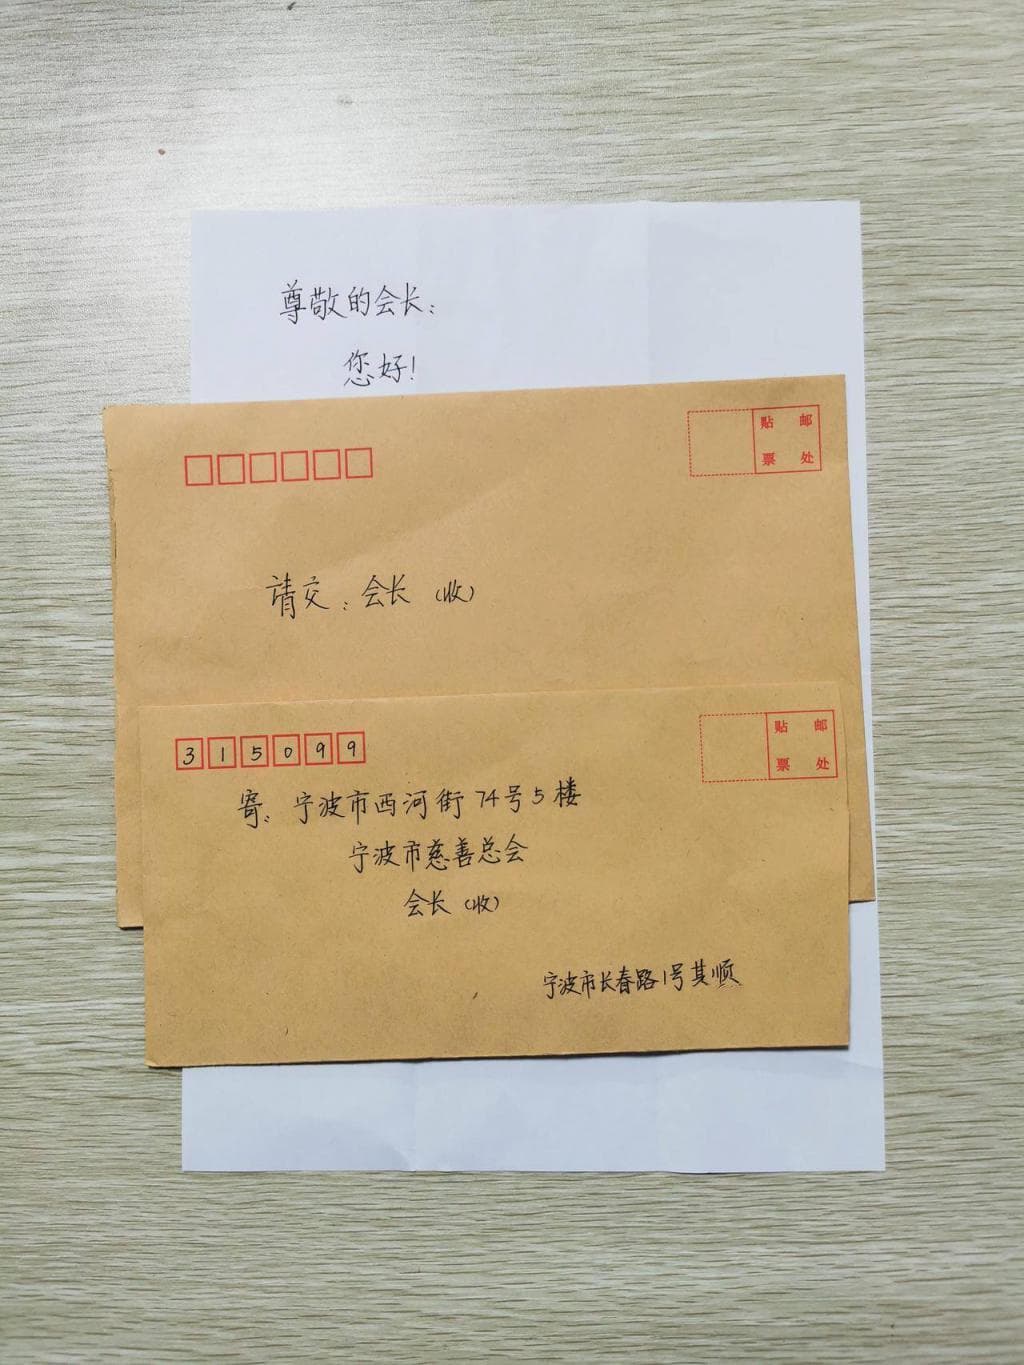 尊敬的会长：
您好！
贴 邮
票 处
请交：会长（收）
315099
贴 邮
票 处
寄：宁波市西河街74号5楼
宁波市慈善总会
会长（收）
宁波市长春路1号其顺